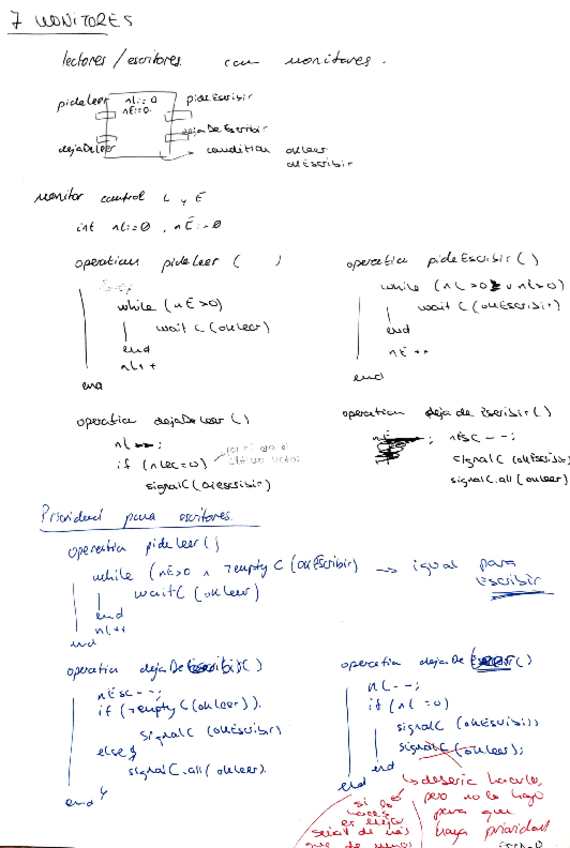 7 MONITORES
lectores / escritores con monitores.
pideLeer
nL:=0
nE:=0.
pideEscribir
dejaDeLeer
dejaDeEscribir
condition okLeer
okEscribir
monitor control L y E
int nL:=0, nE:=0
operation pideLeer ( )
while (nE>0)
waitC (okLeer)
end
nL++
end
operation pideEscribir ( )
while (nE>0 v nL>0)
waitC (okEscribir)
end
nE++
end
operation dejaDeLeer ( )
nL--;
if (nLec=0)
signalC (okEscribir)
operation deja de Escribir ( )
; nEsc--;
signalC (okEscribir)
signalC.all (okLeer)
Prioridad para escritores.
operation pideLeer ( )
while (nE>0 ∧ ¬emptyC (okEscribir) → igual para
Escribir
waitC (okLeer)
end
nL++
end
operation dejaDe ( )
nEsc--;
if (¬emptyC (okLeer)).
signalC (okEscribir)
else {
signalC.all (okLeer).
end }
operation dejaDe ( )
nL--;
if (nL=0)
signalC (okEscribir)
signalC (okLeer);
end
end
debería hacerlo,
pero no lo hago
para que
haya prioridad
si lo
haces
es mejor
señal de más
que de menos